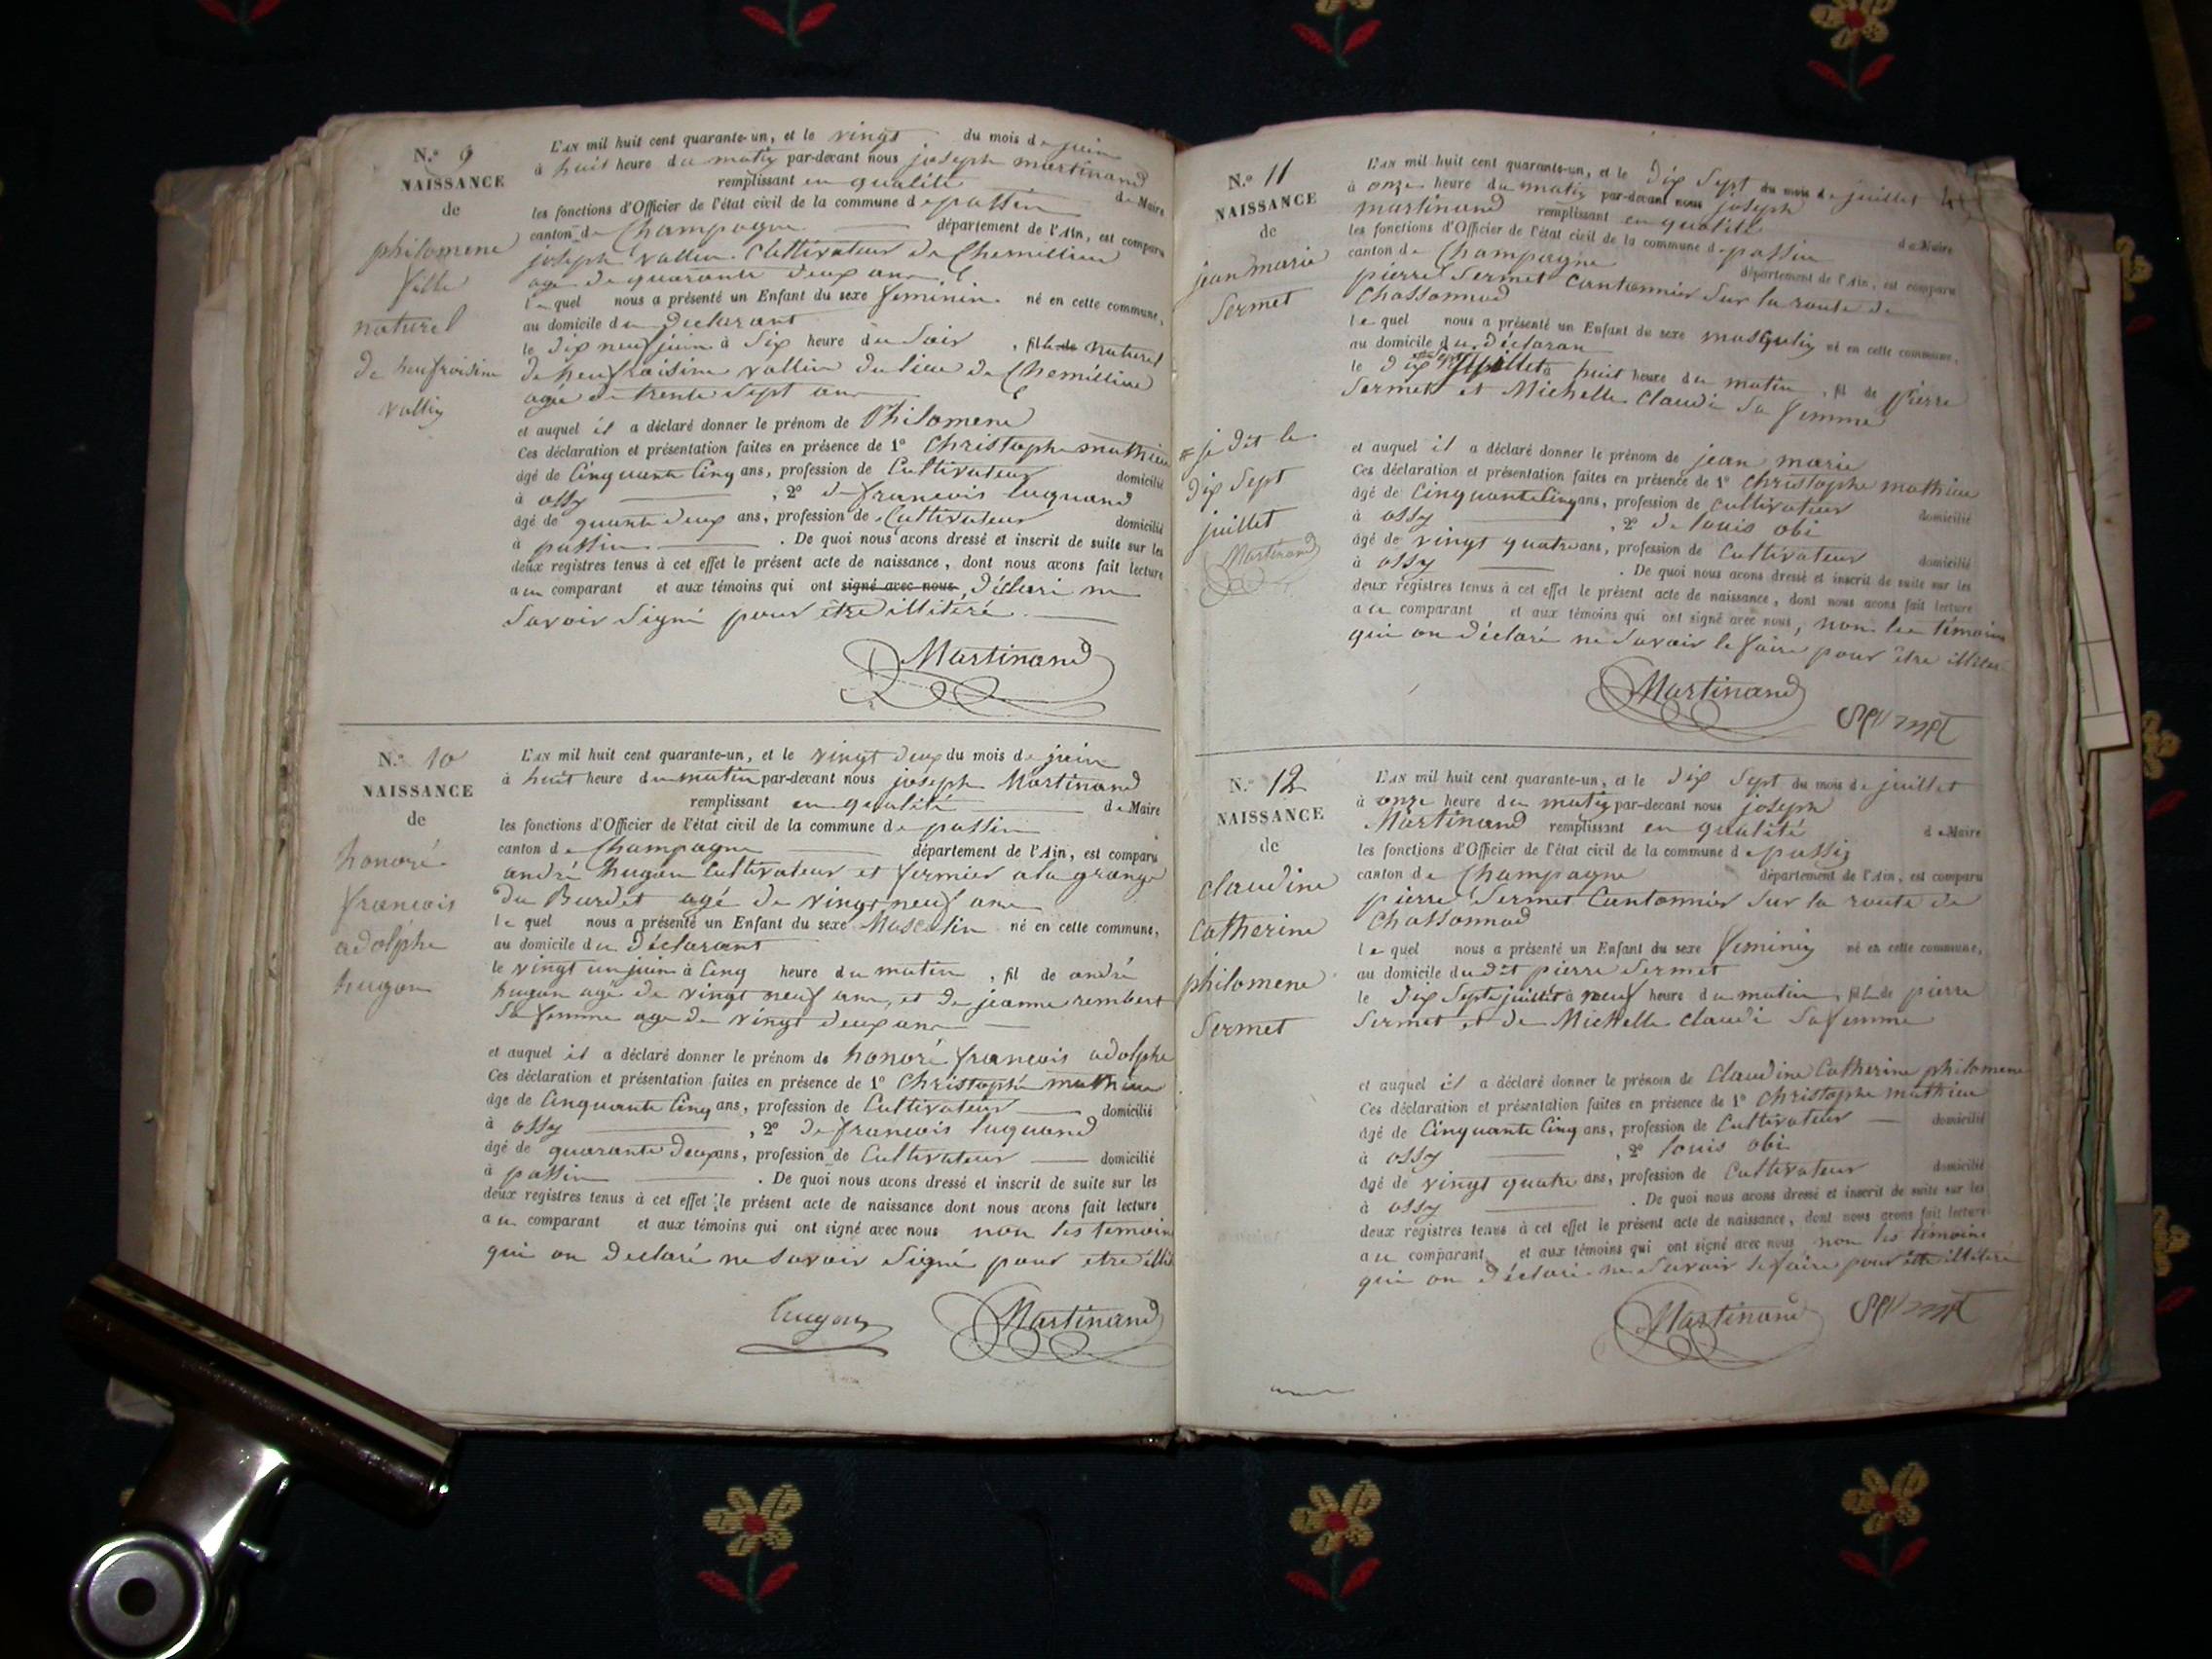 N.° 9
NAISSANCE
de
philomene
fille
naturel
de heufroisine
vallin
L'AN mil huit cent quarante-un, et le vingt du mois de juin
à huit heure du matin par-devant nous joseph martinand
remplissant en qualité de Maire
les fonctions d'Officier de l'état civil de la commune de passin
canton de Champagne département de l'Ain, est comparu
joseph vallin Cultivateur de Chemillieu
age de quarante deux ans
lequel nous a présenté un Enfant du sexe feminin né en cette commune,
au domicile du declarant
le dix neuf juin à Six heure du Soir , fille de naturel
de heufroisine vallin du lieu de Chemillieu
agée de trente Sept ans
et auquel il a déclaré donner le prénom de Philomene
Ces déclaration et présentation faites en présence de 1° Christophe mathieu
âgé de Cinquante Cinq ans, profession de Cultivateur domicilié
à ossy , 2° de francois luquand
âgé de quante deux ans, profession de Cultivateur domicilié
à passin . De quoi nous avons dressé et inscrit de suite sur les
deux registres tenus à cet effet le présent acte de naissance, dont nous avons fait lecture
au comparant et aux témoins qui ont signé avec nous, déclaré ne
Savoir Signé pour être illitéré
Martinand
N.° 10
NAISSANCE
de
honoré
francois
adolphe
hugon
L'AN mil huit cent quarante-un, et le vingt deux du mois de juin
à huit heure du matin par-devant nous joseph Martinand
remplissant en qualité de Maire
les fonctions d'Officier de l'état civil de la commune de passin
canton de Champagne département de l'Ain, est comparu
andré hugon Cultivateur et fermier a la grange
du Burdet agé de vingt neuf ans
lequel nous a présenté un Enfant du sexe Masculin né en cette commune,
au domicile du déclarant
le vingt un juin à Cinq heure du matin , fil de andré
hugon agé de vingt neuf ans, et de jeanne rembert
Sa femme age de vingt deux ans
et auquel il a déclaré donner le prénom de honoré francois adolphe
Ces déclaration et présentation faites en présence de 1° Christophe mathieu
âgé de Cinquante Cinq ans, profession de Cultivateur domicilié
à ossy , 2° de francois luquand
âgé de quarante deux ans, profession de Cultivateur domicilié
à passin . De quoi nous avons dressé et inscrit de suite sur les
deux registres tenus à cet effet le présent acte de naissance dont nous avons fait lecture
au comparant et aux témoins qui ont signé avec nous non les temoin
qui on declaré ne Savoir Signé pour etre illit
hugon Martinand
N.° 11
NAISSANCE
de
jean marie
Sermet
# je dit le
dix Sept
juillet
Martinand
L'AN mil huit cent quarante-un, et le Dix Sept du mois de juillet
à onze heure du matin par-devant nous joseph
martinand remplissant en qualité de Maire
les fonctions d'Officier de l'état civil de la commune de passin
canton de Champagne département de l'Ain, est comparu
pierre Sermet Cantonnier Sur la route de
Chassonnod
lequel nous a présenté un Enfant du sexe masqulin né en cette commune,
au domicile du déclaran
le dix juillet à huit heure du matin , fil de Pierre
Sermet et Michelle Claudi Sa femme
et auquel il a déclaré donner le prénom de jean marie
Ces déclaration et présentation faites en présence de 1° Christophe mathieu
âgé de Cinquante Cinq ans, profession de Cultivateur domicilié
à ossy , 2° de louis obi
âgé de vingt quatre ans, profession de Cultivateur domicilié
à ossy . De quoi nous avons dressé et inscrit de suite sur les
deux registres tenus à cet effet le présent acte de naissance, dont nous avons fait lecture
au comparant et aux témoins qui ont signé avec nous, non les témoins
qui on déclaré ne Savoir le faire pour être illiter
Martinand Sermet
N.° 12
NAISSANCE
de
claudine
Catherine
philomene
Sermet
L'AN mil huit cent quarante-un, et le dix Sept du mois de juillet
à onze heure du matin par-devant nous joseph
Martinand remplissant en qualité de Maire
les fonctions d'Officier de l'état civil de la commune de passin
canton de Champagne département de l'Ain, est comparu
pierre Sermet Cantonnier Sur la route de
Chassonnod
lequel nous a présenté un Enfant du sexe feminin né en cette commune,
au domicile dudit pierre Sermet
le dix Sept juillet à neuf heure du matin , fille de pierre
Sermet et de Michelle Claudi Sa femme
et auquel il a déclaré donner le prénom de Claudine Catherine philomene
Ces déclaration et présentation faites en présence de 1° Christophe mathieu
âgé de Cinquante Cinq ans, profession de Cultivateur domicilié
à ossy , 2° louis obi
âgé de vingt quatre ans, profession de Cultivateur domicilié
à ossy . De quoi nous avons dressé et inscrit de suite sur les
deux registres tenus à cet effet le présent acte de naissance, dont nous avons fait lecture
au comparant et aux témoins qui ont signé avec nous non les témoins
qui on déclaré ne Savoir le faire pour être illitéré
Martinand Sermet